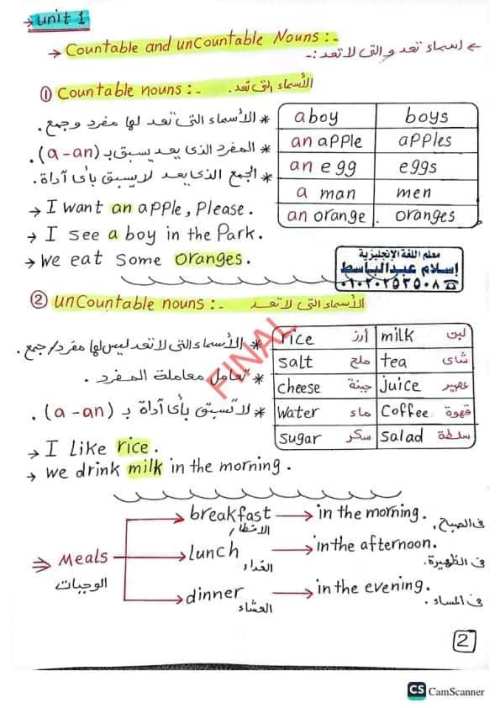 → unit 1
→ Countable and unCountable Nouns :-
← اسماء تعد و التى لا تعد :-
① Countable nouns :- الأسماء التى تعد .
* الأسماء التى تعد لها مفرد وجمع .
* المفرد الذى يعد يسبق بـ (a - an) .
* الجمع الذى يعد لا يسبق بأى آداة .
a boy boys
an apple apples
an egg eggs
a man men
an orange oranges
→ I want an apple, Please .
→ I see a boy in the Park .
→ we eat some oranges .
معلم اللغة الإنجليزية
إسلام عبدالباسط
٠١٠٢٠٢٥٣٥٠٨
② unCountable nouns :- الأسماء التى لا تعد
* الأسماء التى لا تعد ليس لها مفرد/جمع .
* تعامل معاملة المفرد .
* لا تسبق بأى آداة بـ (a - an) .
rice أرز milk لبن
salt ملح tea شاى
cheese جبنة juice عصير
water ماء Coffee قهوة
sugar سكر salad سلطة
FINAL
→ I like rice .
→ we drink milk in the morning .
⇒ Meals الوجبات
breakfast الافطار → in the morning . فى الصباح .
lunch الغداء → in the afternoon . فى الظهيرة .
dinner العشاء → in the evening . فى المساء .
2
CS CamScanner